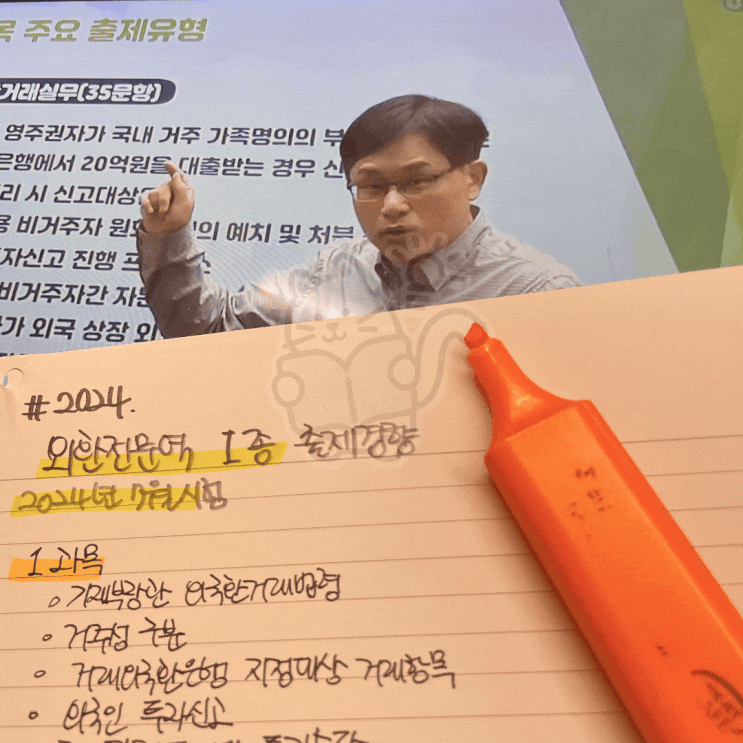 목 주요 출제유형
거래실무(35문항)
영주권자가 국내 거주 가족명의의 부
은행에서 20억원을 대출받는 경우 신
리 시 신고대상
용 비거주자 원화 의 예치 및 처분
자신고 진행 프
비거주자간 자
가 외국 상장 외
#2024.
외환전문역 I종 출제경향
2024년 7월시험
1과목
거래부랑한 외국환거래법령
거주성 구분
거래외국환은행 지정대상 거래항목
외국인 투자신고